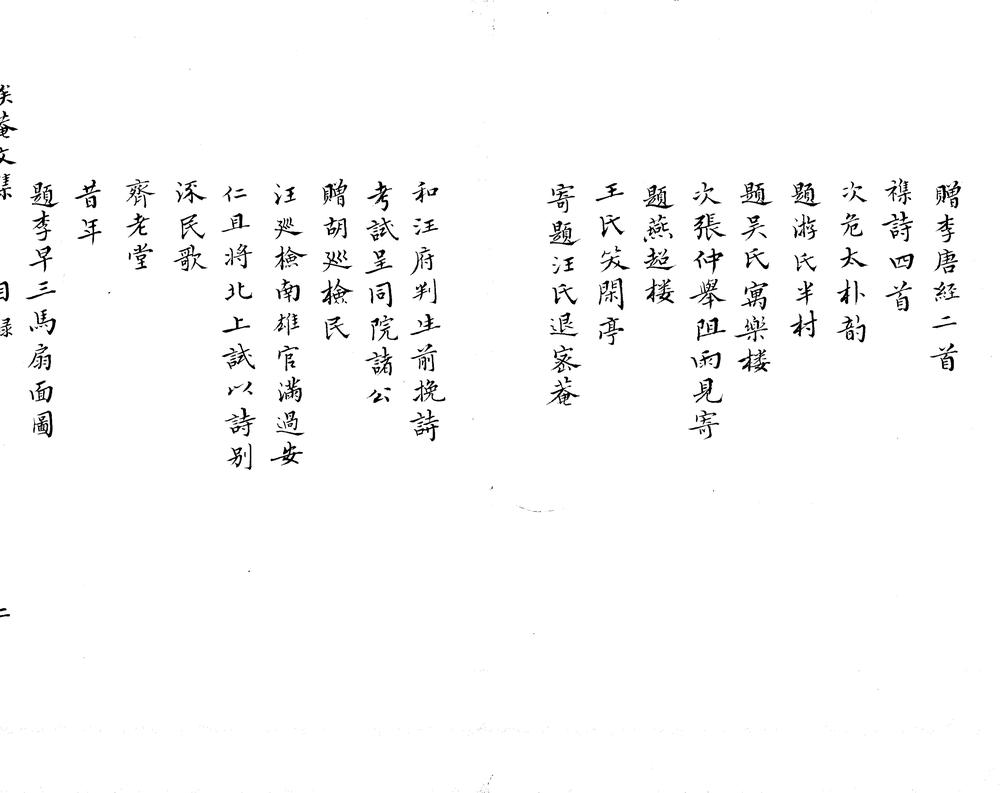 贈李唐經二首
襍詩四首
次危太朴韵
題游氏半村
題吴氏寓樂楼
次張仲舉阻雨見寄
題燕超楼
王氏笑閑亭
寄題汪氏退密菴
和汪府判生前挽詩
考試呈同院諸公
贈胡巡檢民
汪巡檢南雄官滿過安
仁且將北上試以詩别
添民歌
齊老堂
昔年
題李早三馬扇面圖
俟菴文集 目録 二